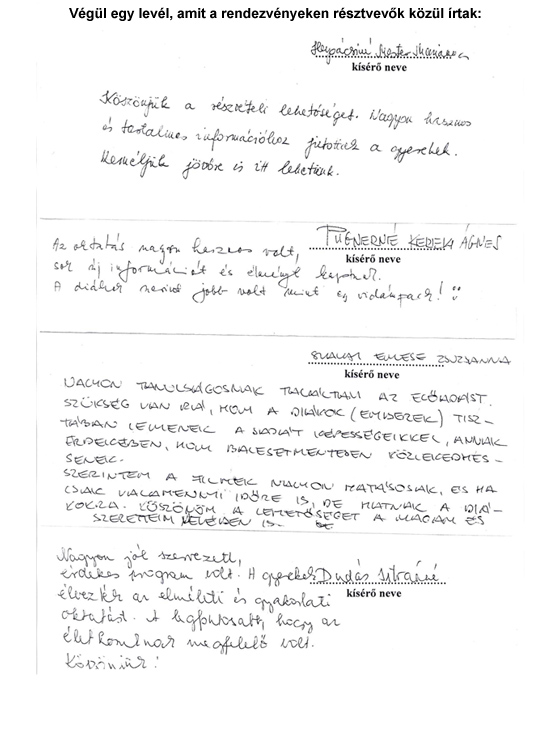 Végül egy levél, amit a rendezvényeken résztvevők közül írtak:
Mester Marianna
kísérő neve
Köszönjük a részvételi lehetőséget. Nagyon hasznos
és tartalmas információhoz jutottak a gyerekek.
Reméljük jövőre is itt lehetünk.
KEREKI ÁGNES
kísérő neve
Az oktatás nagyon hasznos volt,
sok új információt és élményt kaptunk.
A diákok szerint jobb volt mint egy vidámpark!
EMESE ZSUZSANNA
kísérő neve
NAGYON TANULSÁGOSNAK TALÁLTAM AZ ELŐADÁST.
SZÜKSÉG VAN RÁ, HOGY A DIÁKOK (EMBEREK) TISZ-
TÁBAN LEGYENEK A SAJÁT KÉPESSÉGEIKKEL, ANNAK
ÉRDEKÉBEN, HOGY BALESETMENTESEN KÖZLEKEDHES-
SENEK.
SZERINTEM A FILMEK NAGYON HATÁSOSAK, ÉS HA
CSAK VALAMENNYI IDŐRE IS, DE HATNAK A DIÁ-
KOKRA. KÖSZÖNÖM A LEHETŐSÉGET A MAGAM ÉS
SZERETTEIM NEVÉBEN IS.
Nagyon jól szervezett,
érdekes program volt. A gyerekek
Dudás Istvánné
kísérő neve
élvezték az elméleti és gyakorlati
oktatást. A legfontosabb, hogy az
életkoruknak megfelelő volt.
Köszönjük!